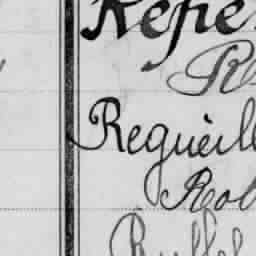 Repe
R
Regueill
Rob
Ruffel